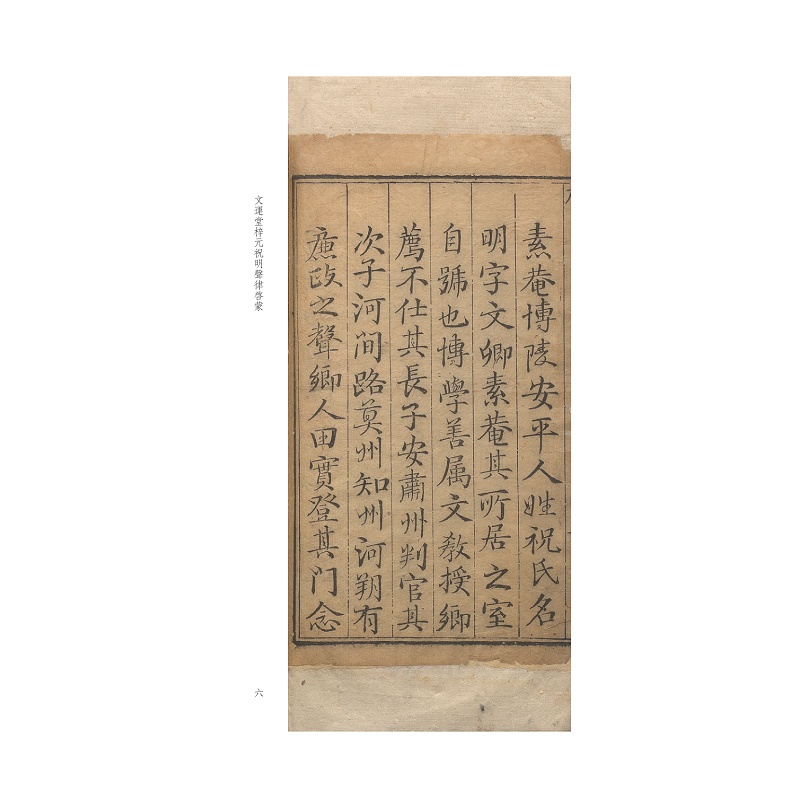 素菴博陵安平人姓祝氏名
明字文卿素菴其所居之室
自號也博學善属文教授鄉
薦不仕其長子安肅州判官其
次子河間路莫州知州河朔有
廉政之聲鄉人田實登其門念
文運堂梓元祝明聲律啓蒙
六